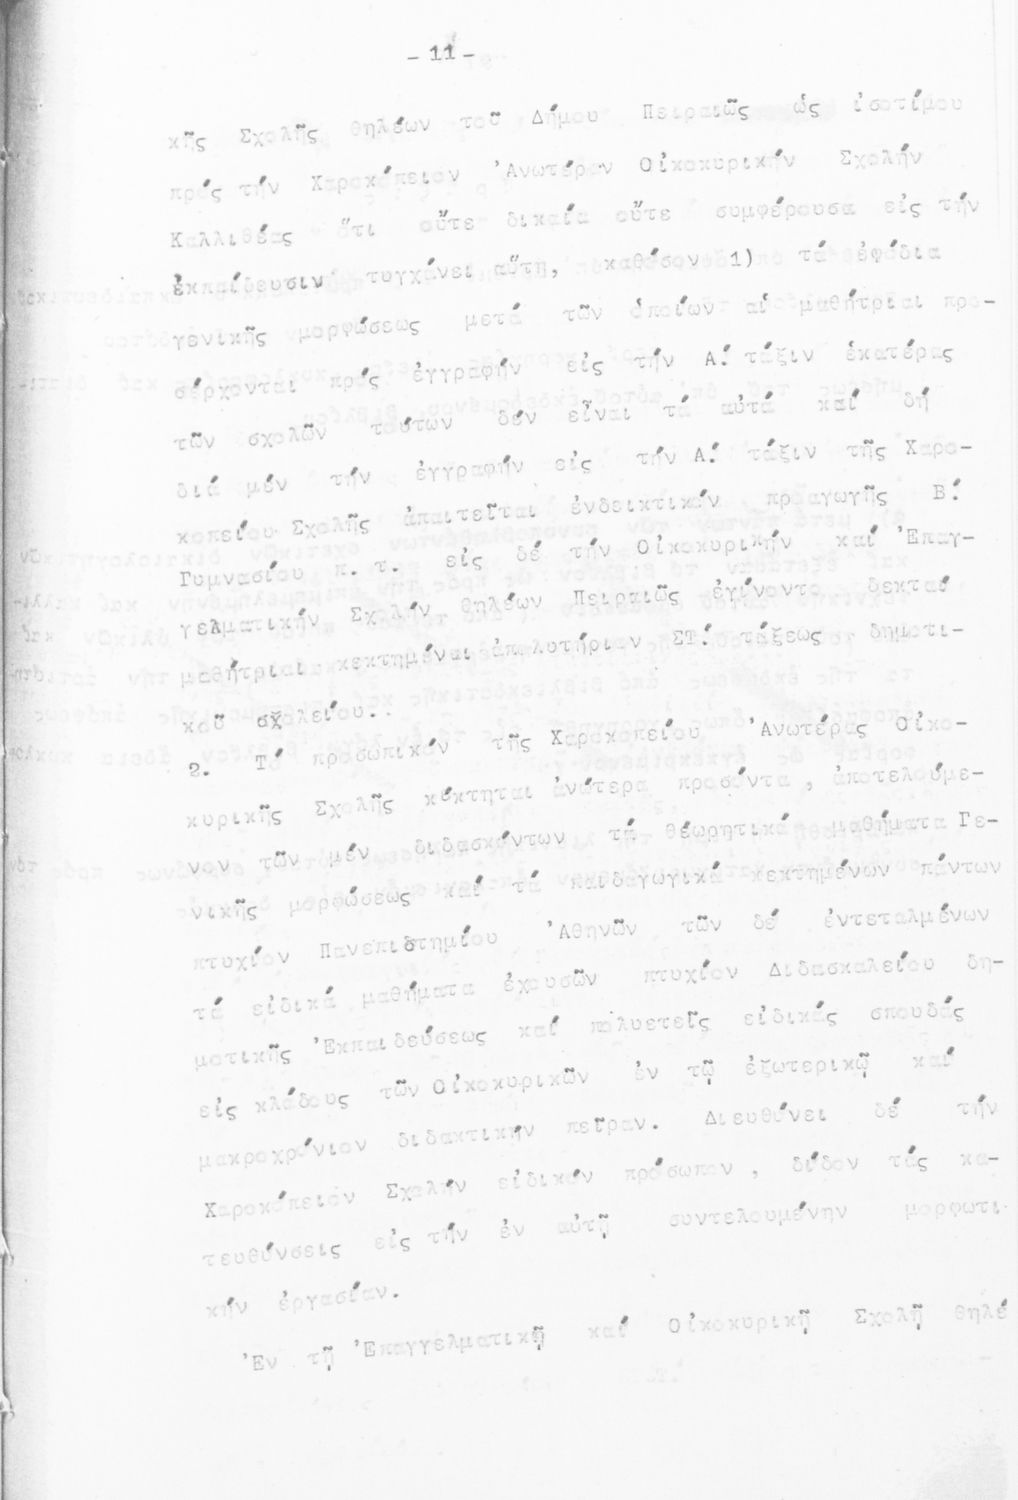 - 11 -
κῆς Σχολῆς θηλέων τοῦ Δήμου Πειραιῶς ὡς ἰσοτίμου
πρός τήν Χαροκόπειον Ἀνωτέραν Οἰκοκυρικήν Σχολήν
Καλλιθέας ὅτι οὔτε δικαία οὔτε συμφέρουσα εἰς τήν
ἐκπαίδευσιν τυγχάνει αὕτη, καθόσον 1) τά ἐφόδια
γενικῆς μορφώσεως μετά τῶν ὁποίων αἱ μαθήτριαι προ-
σέρχονται πρός ἐγγραφήν εἰς τήν Α΄ τάξιν ἑκατέρας
τῶν σχολῶν τούτων δέν εἶναι τά αὐτά καί δή
διά μέν τήν ἐγγραφήν εἰς τήν Α΄ τάξιν τῆς Χαρο-
κοπείου Σχολῆς ἀπαιτεῖται ἐνδεικτικόν προαγωγῆς Β΄
Γυμνασίου π.τ. εἰς δέ τήν Οἰκοκυρικήν καί Ἐπαγ-
γελματικήν Σχολήν θηλέων Πειραιῶς ἐγίνοντο δεκταί
μαθήτριαι κεκτημέναι ἀπολυτήριον ΣΤ΄ τάξεως δημοτι-
κοῦ σχολείου..
2. Τό προσωπικόν τῆς Χαροκοπείου Ἀνωτέρας Οἰκο-
κυρικῆς Σχολῆς κέκτηται ἀνώτερα προσόντα, ἀποτελούμε-
νον τῶν μέν διδασκόντων τά θεωρητικά μαθήματα Γε-
νικῆς μορφώσεως καί τά παιδαγωγικά κεκτημένων πάντων
πτυχίον Πανεπιστημίου Ἀθηνῶν τῶν δέ ἐντεταλμένων
τά εἰδικά μαθήματα ἐχουσῶν πτυχίον Διδασκαλείου δη-
μοτικῆς Ἐκπαιδεύσεως καί πολυετεῖς εἰδικάς σπουδάς
εἰς κλάδους τῶν Οἰκοκυρικῶν ἐν τῷ ἐξωτερικῷ καί
μακροχρόνιον διδακτικήν πεῖραν. Διευθύνει δέ τήν
Χαροκόπειον Σχολήν εἰδικόν πρόσωπον, δίδον τάς κα-
τευθύνσεις εἰς τήν ἐν αὐτῇ συντελουμένην μορφωτι-
κήν ἐργασίαν.
Ἐν τῇ Ἐπαγγελματικῇ καί Οἰκοκυρικῇ Σχολῇ θηλέ